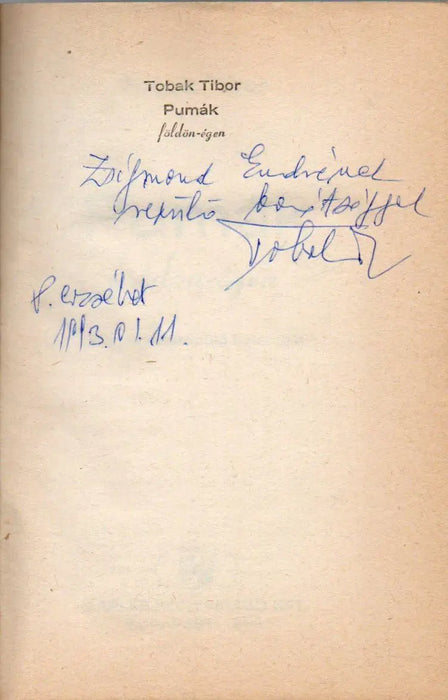 Tobak Tibor
Pumák
földön-égen
Zsigmond Endrének
repülő barátsággal
Tobak T
P. erzsébet
1993.01.11.